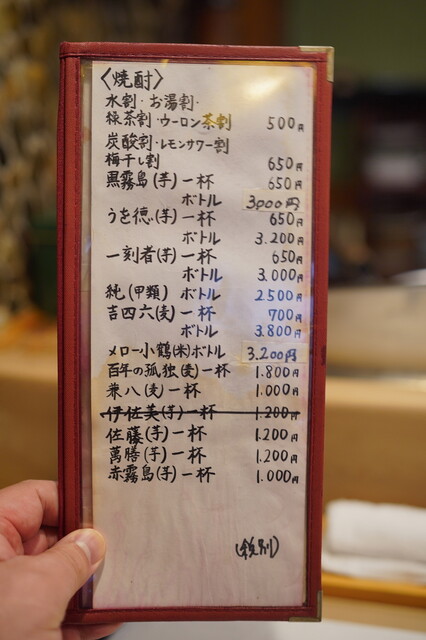 〈焼酎〉
水割・お湯割・
緑茶割・ウーロン茶割 500円
炭酸割・レモンサワー割
梅干し割 650円
黒霧島(芋)一杯 650円
ボトル 3,000円
うを徳(芋)一杯 650円
ボトル 3.200円
一刻者(芋)一杯 650円
ボトル 3.000円
純(甲類) ボトル 2500円
吉四六(麦)一杯 700円
ボトル 3.800円
メロー小鶴(米)ボトル 3.200円
百年の孤独(麦)一杯 1.800円
兼八(麦)一杯 1.000円
伊佐美(芋)一杯 1.200円
佐藤(芋)一杯 1.200円
萬膳(芋)一杯 1.200円
赤霧島(芋)一杯 1.000円
(税別)